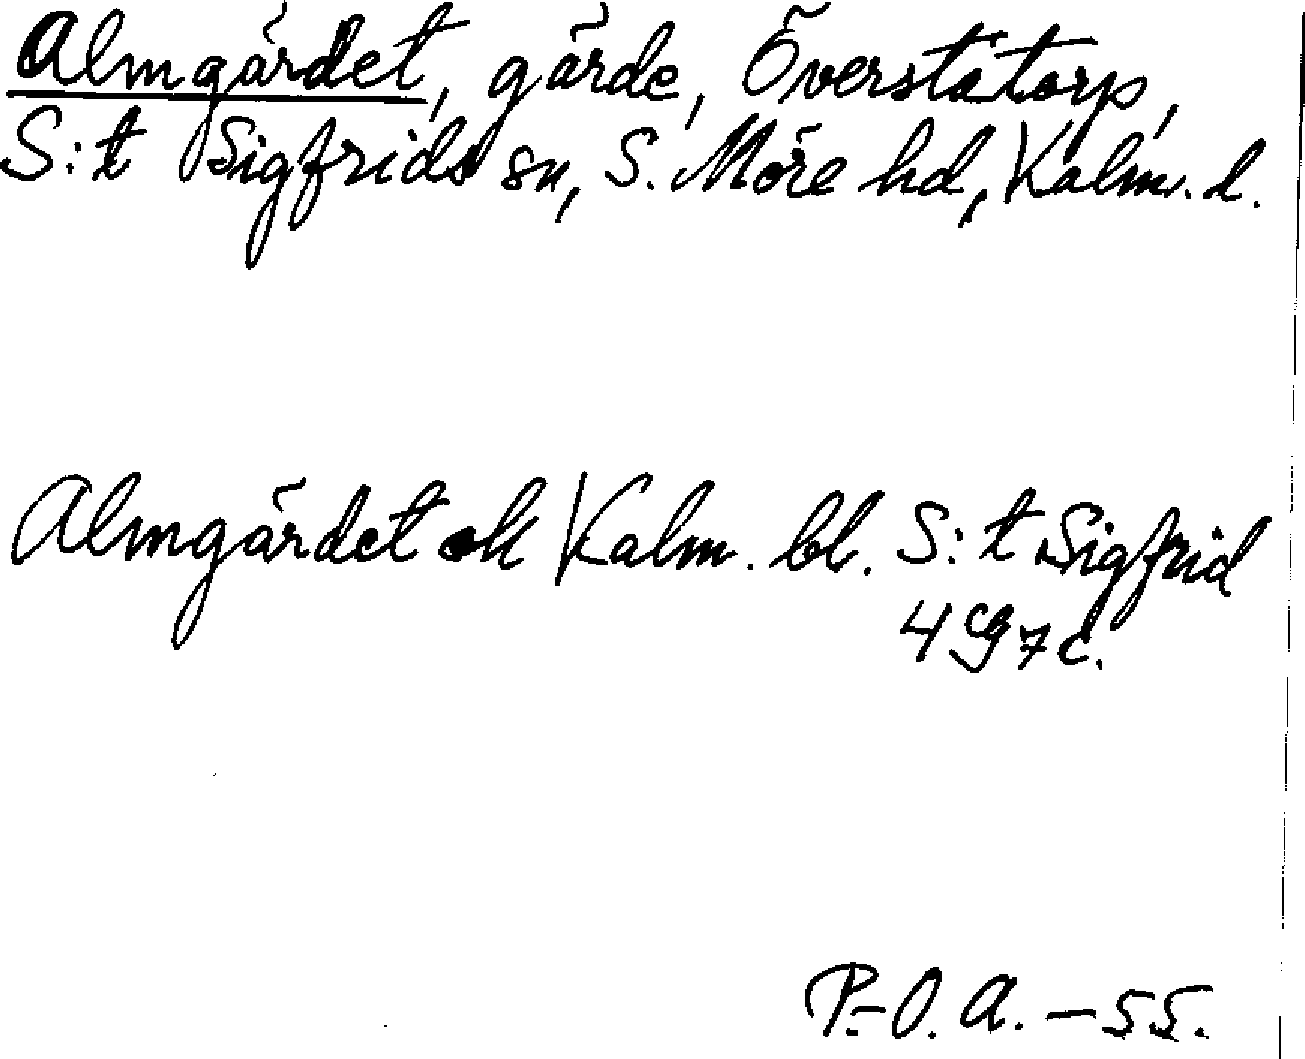 Almgärdet, gärde, Överstatorp,
S:t Sigfrids sn, S. Möre hd, Kalm. l.
Almgärdet ek Kalm. bl. S:t Sigfrid
4 G 7 c.
P.-O. A. - 55.